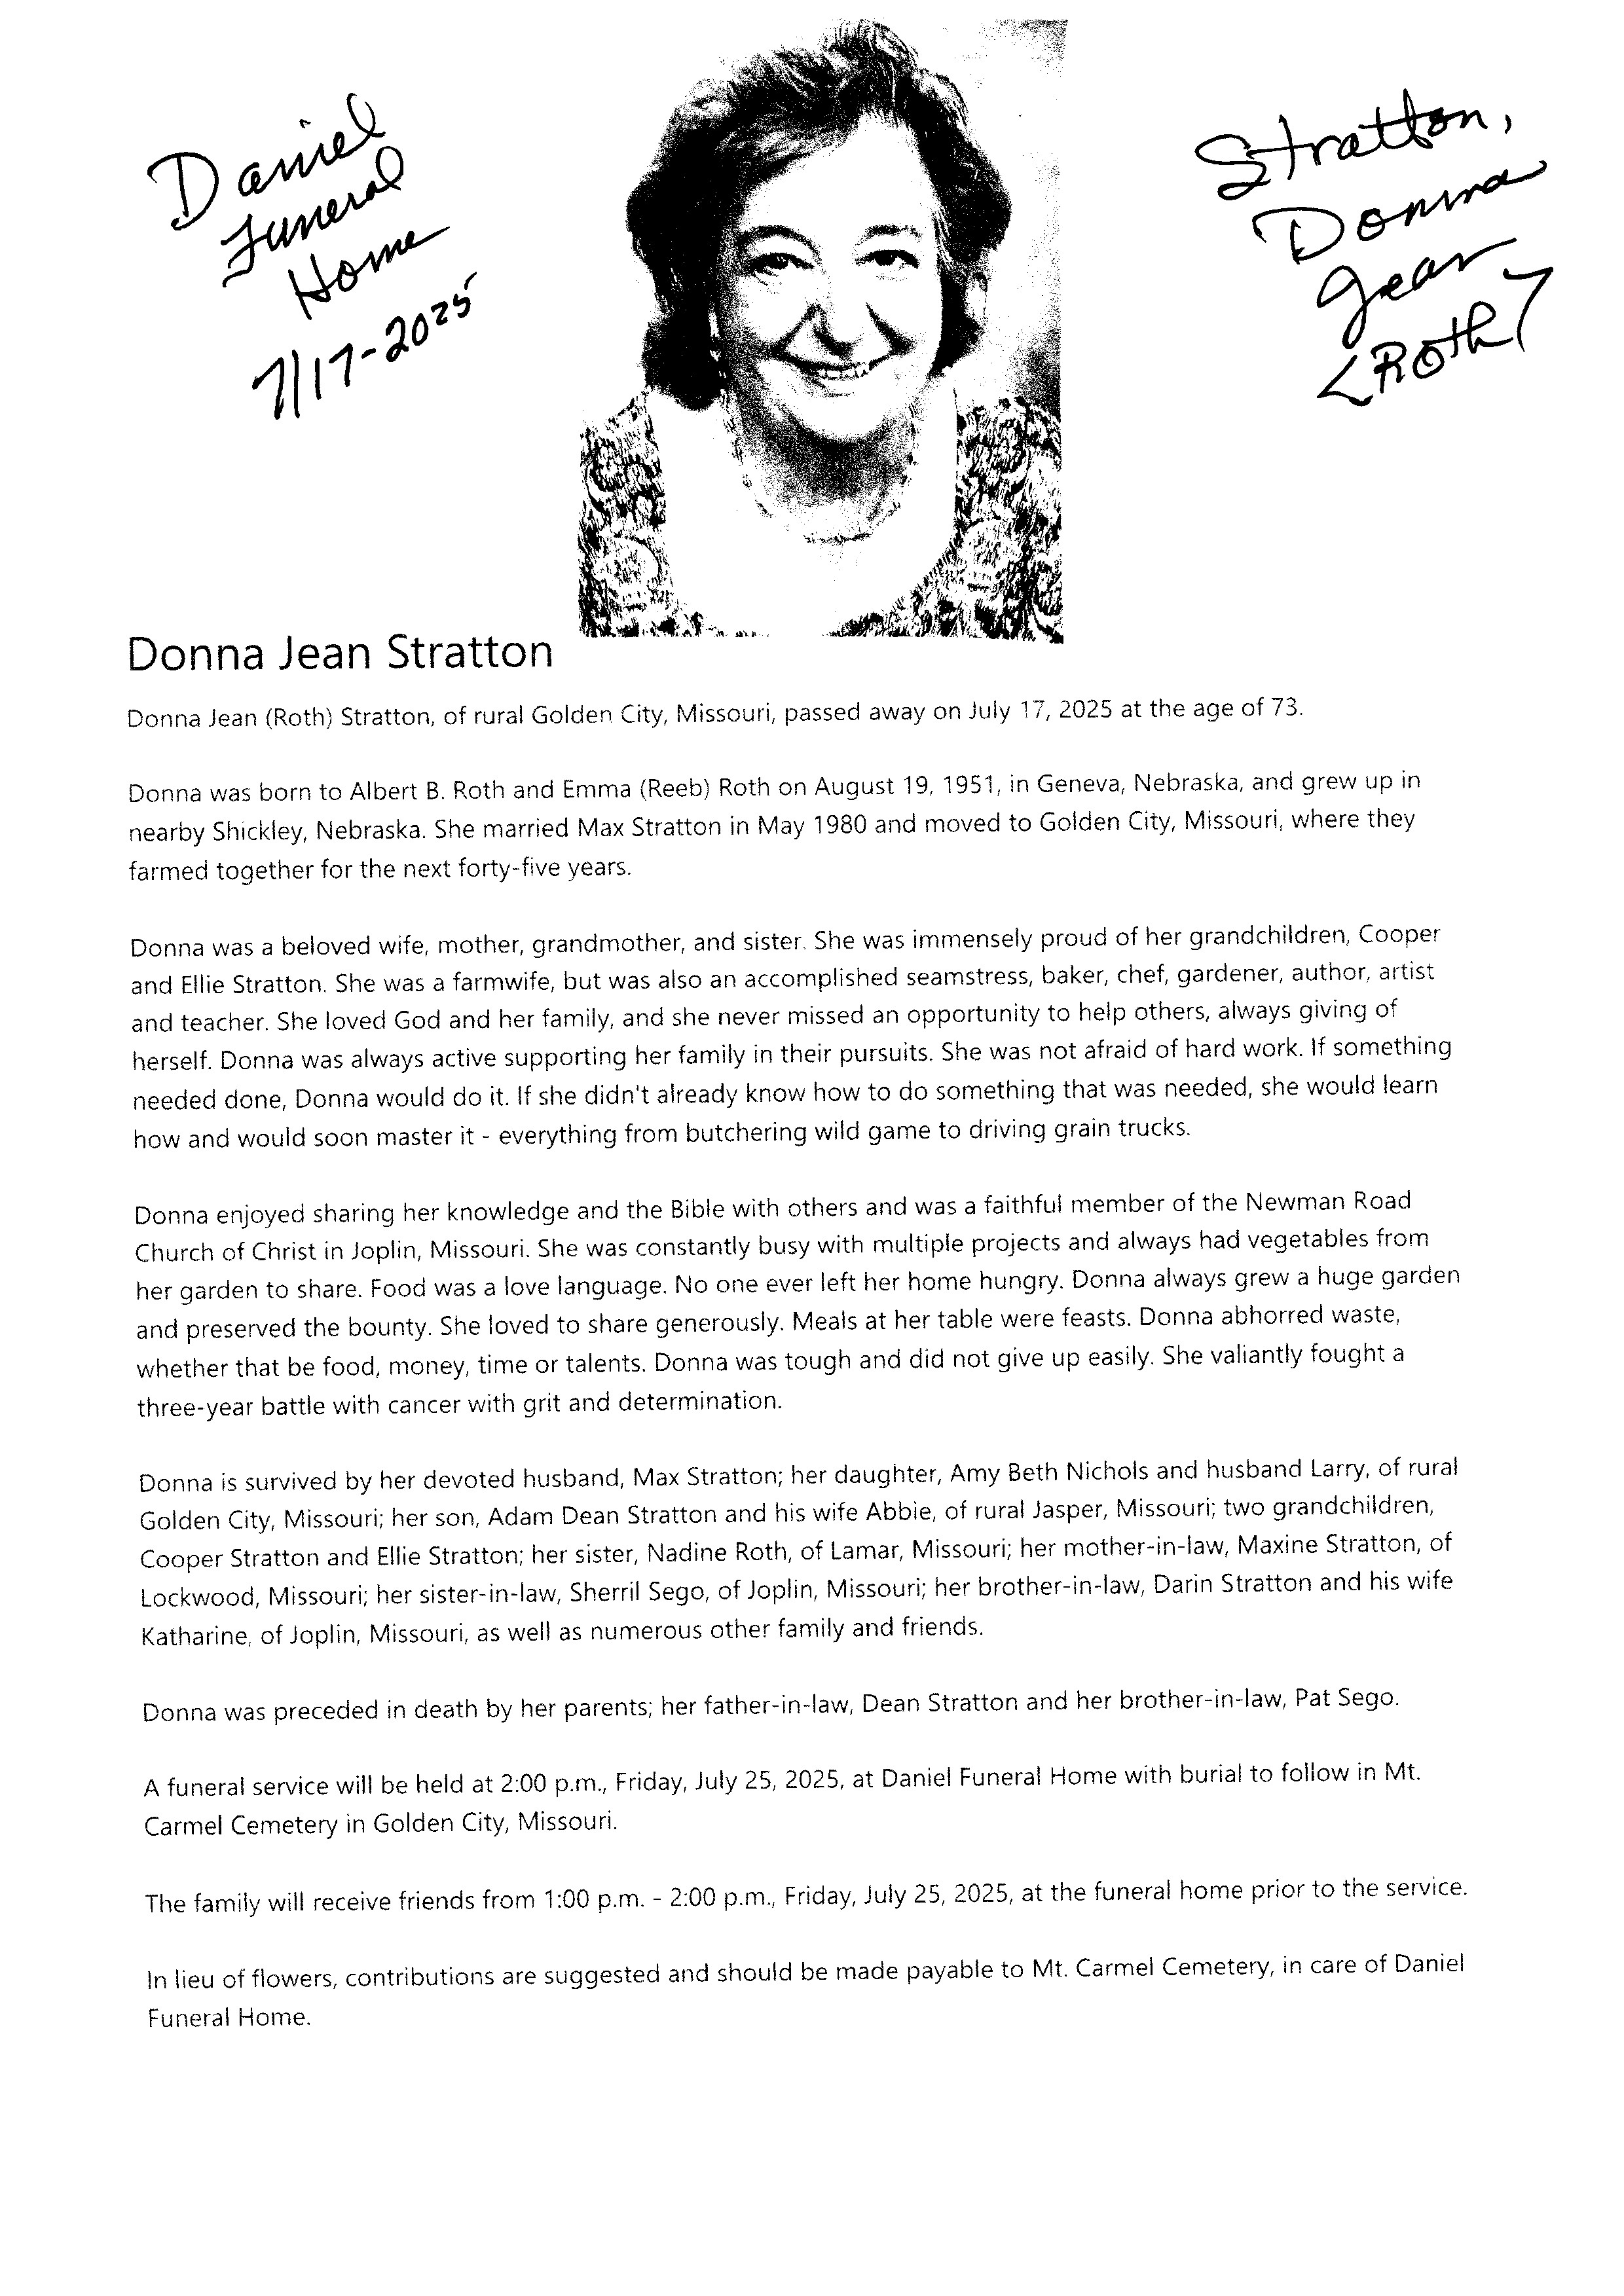 Daniel
Funeral
Home
7/17-2025
Stratton,
Donna
Jean
<Roth>
Donna Jean Stratton
Donna Jean (Roth) Stratton, of rural Golden City, Missouri, passed away on July 17, 2025 at the age of 73.
Donna was born to Albert B. Roth and Emma (Reeb) Roth on August 19, 1951, in Geneva, Nebraska, and grew up in
nearby Shickley, Nebraska. She married Max Stratton in May 1980 and moved to Golden City, Missouri, where they
farmed together for the next forty-five years.
Donna was a beloved wife, mother, grandmother, and sister. She was immensely proud of her grandchildren, Cooper
and Ellie Stratton. She was a farmwife, but was also an accomplished seamstress, baker, chef, gardener, author, artist
and teacher. She loved God and her family, and she never missed an opportunity to help others, always giving of
herself. Donna was always active supporting her family in their pursuits. She was not afraid of hard work. If something
needed done, Donna would do it. If she didn't already know how to do something that was needed, she would learn
how and would soon master it - everything from butchering wild game to driving grain trucks.
Donna enjoyed sharing her knowledge and the Bible with others and was a faithful member of the Newman Road
Church of Christ in Joplin, Missouri. She was constantly busy with multiple projects and always had vegetables from
her garden to share. Food was a love language. No one ever left her home hungry. Donna always grew a huge garden
and preserved the bounty. She loved to share generously. Meals at her table were feasts. Donna abhorred waste,
whether that be food, money, time or talents. Donna was tough and did not give up easily. She valiantly fought a
three-year battle with cancer with grit and determination.
Donna is survived by her devoted husband, Max Stratton; her daughter, Amy Beth Nichols and husband Larry, of rural
Golden City, Missouri; her son, Adam Dean Stratton and his wife Abbie, of rural Jasper, Missouri; two grandchildren,
Cooper Stratton and Ellie Stratton; her sister, Nadine Roth, of Lamar, Missouri; her mother-in-law, Maxine Stratton, of
Lockwood, Missouri; her sister-in-law, Sherril Sego, of Joplin, Missouri; her brother-in-law, Darin Stratton and his wife
Katharine, of Joplin, Missouri, as well as numerous other family and friends.
Donna was preceded in death by her parents; her father-in-law, Dean Stratton and her brother-in-law, Pat Sego.
A funeral service will be held at 2:00 p.m., Friday, July 25, 2025, at Daniel Funeral Home with burial to follow in Mt.
Carmel Cemetery in Golden City, Missouri.
The family will receive friends from 1:00 p.m. - 2:00 p.m., Friday, July 25, 2025, at the funeral home prior to the service.
In lieu of flowers, contributions are suggested and should be made payable to Mt. Carmel Cemetery, in care of Daniel
Funeral Home.